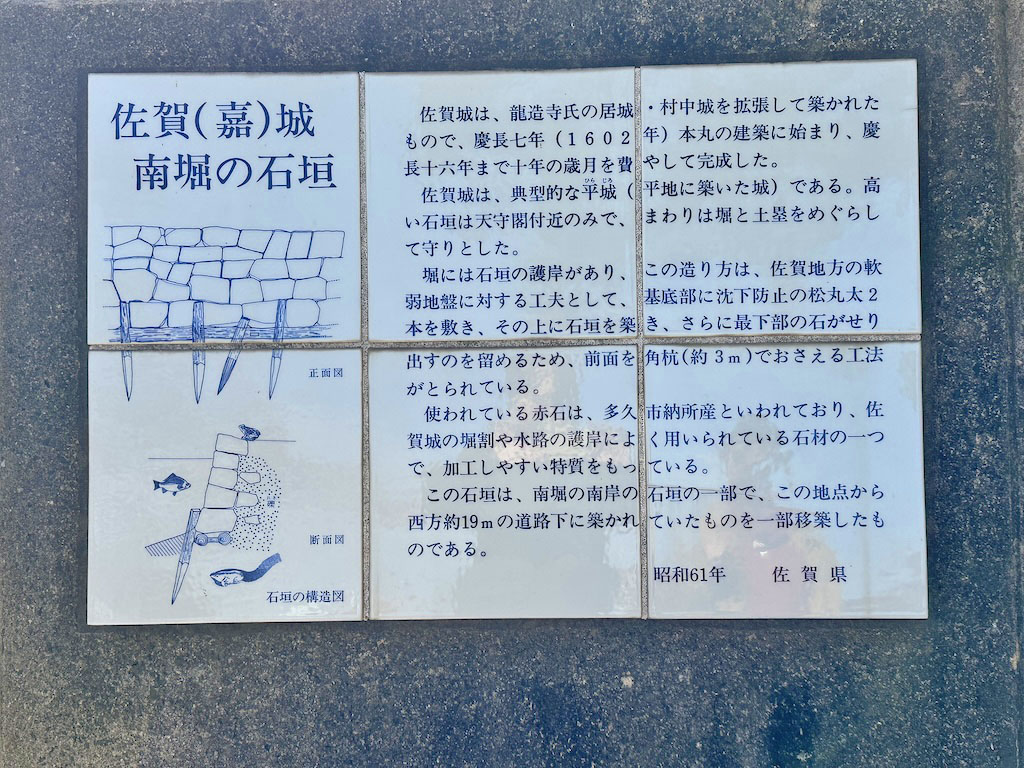 佐賀(嘉)城
南堀の石垣
正面図
断面図
石垣の構造図
佐賀城は、龍造寺氏の居城・村中城を拡張して築かれた
もので、慶長七年(1602年)本丸の建築に始まり、慶
長十六年まで十年の歳月を費やして完成した。
佐賀城は、典型的な平城(平地に築いた城)である。高
い石垣は天守閣付近のみで、まわりは堀と土塁をめぐらし
て守りとした。
堀には石垣の護岸があり、この造り方は、佐賀地方の軟
弱地盤に対する工夫として、基底部に沈下防止の松丸太2
本を敷き、その上に石垣を築き、さらに最下部の石がせり
出すのを留めるため、前面を角杭(約3m)でおさえる工法
がとられている。
使われている赤石は、多久市納所産といわれており、佐
賀城の堀割や水路の護岸によく用いられている石材の一つ
で、加工しやすい特質をもっている。
この石垣は、南堀の南岸の石垣の一部で、この地点から
西方約19mの道路下に築かれていたものを一部移築したも
のである。
昭和61年 佐賀県